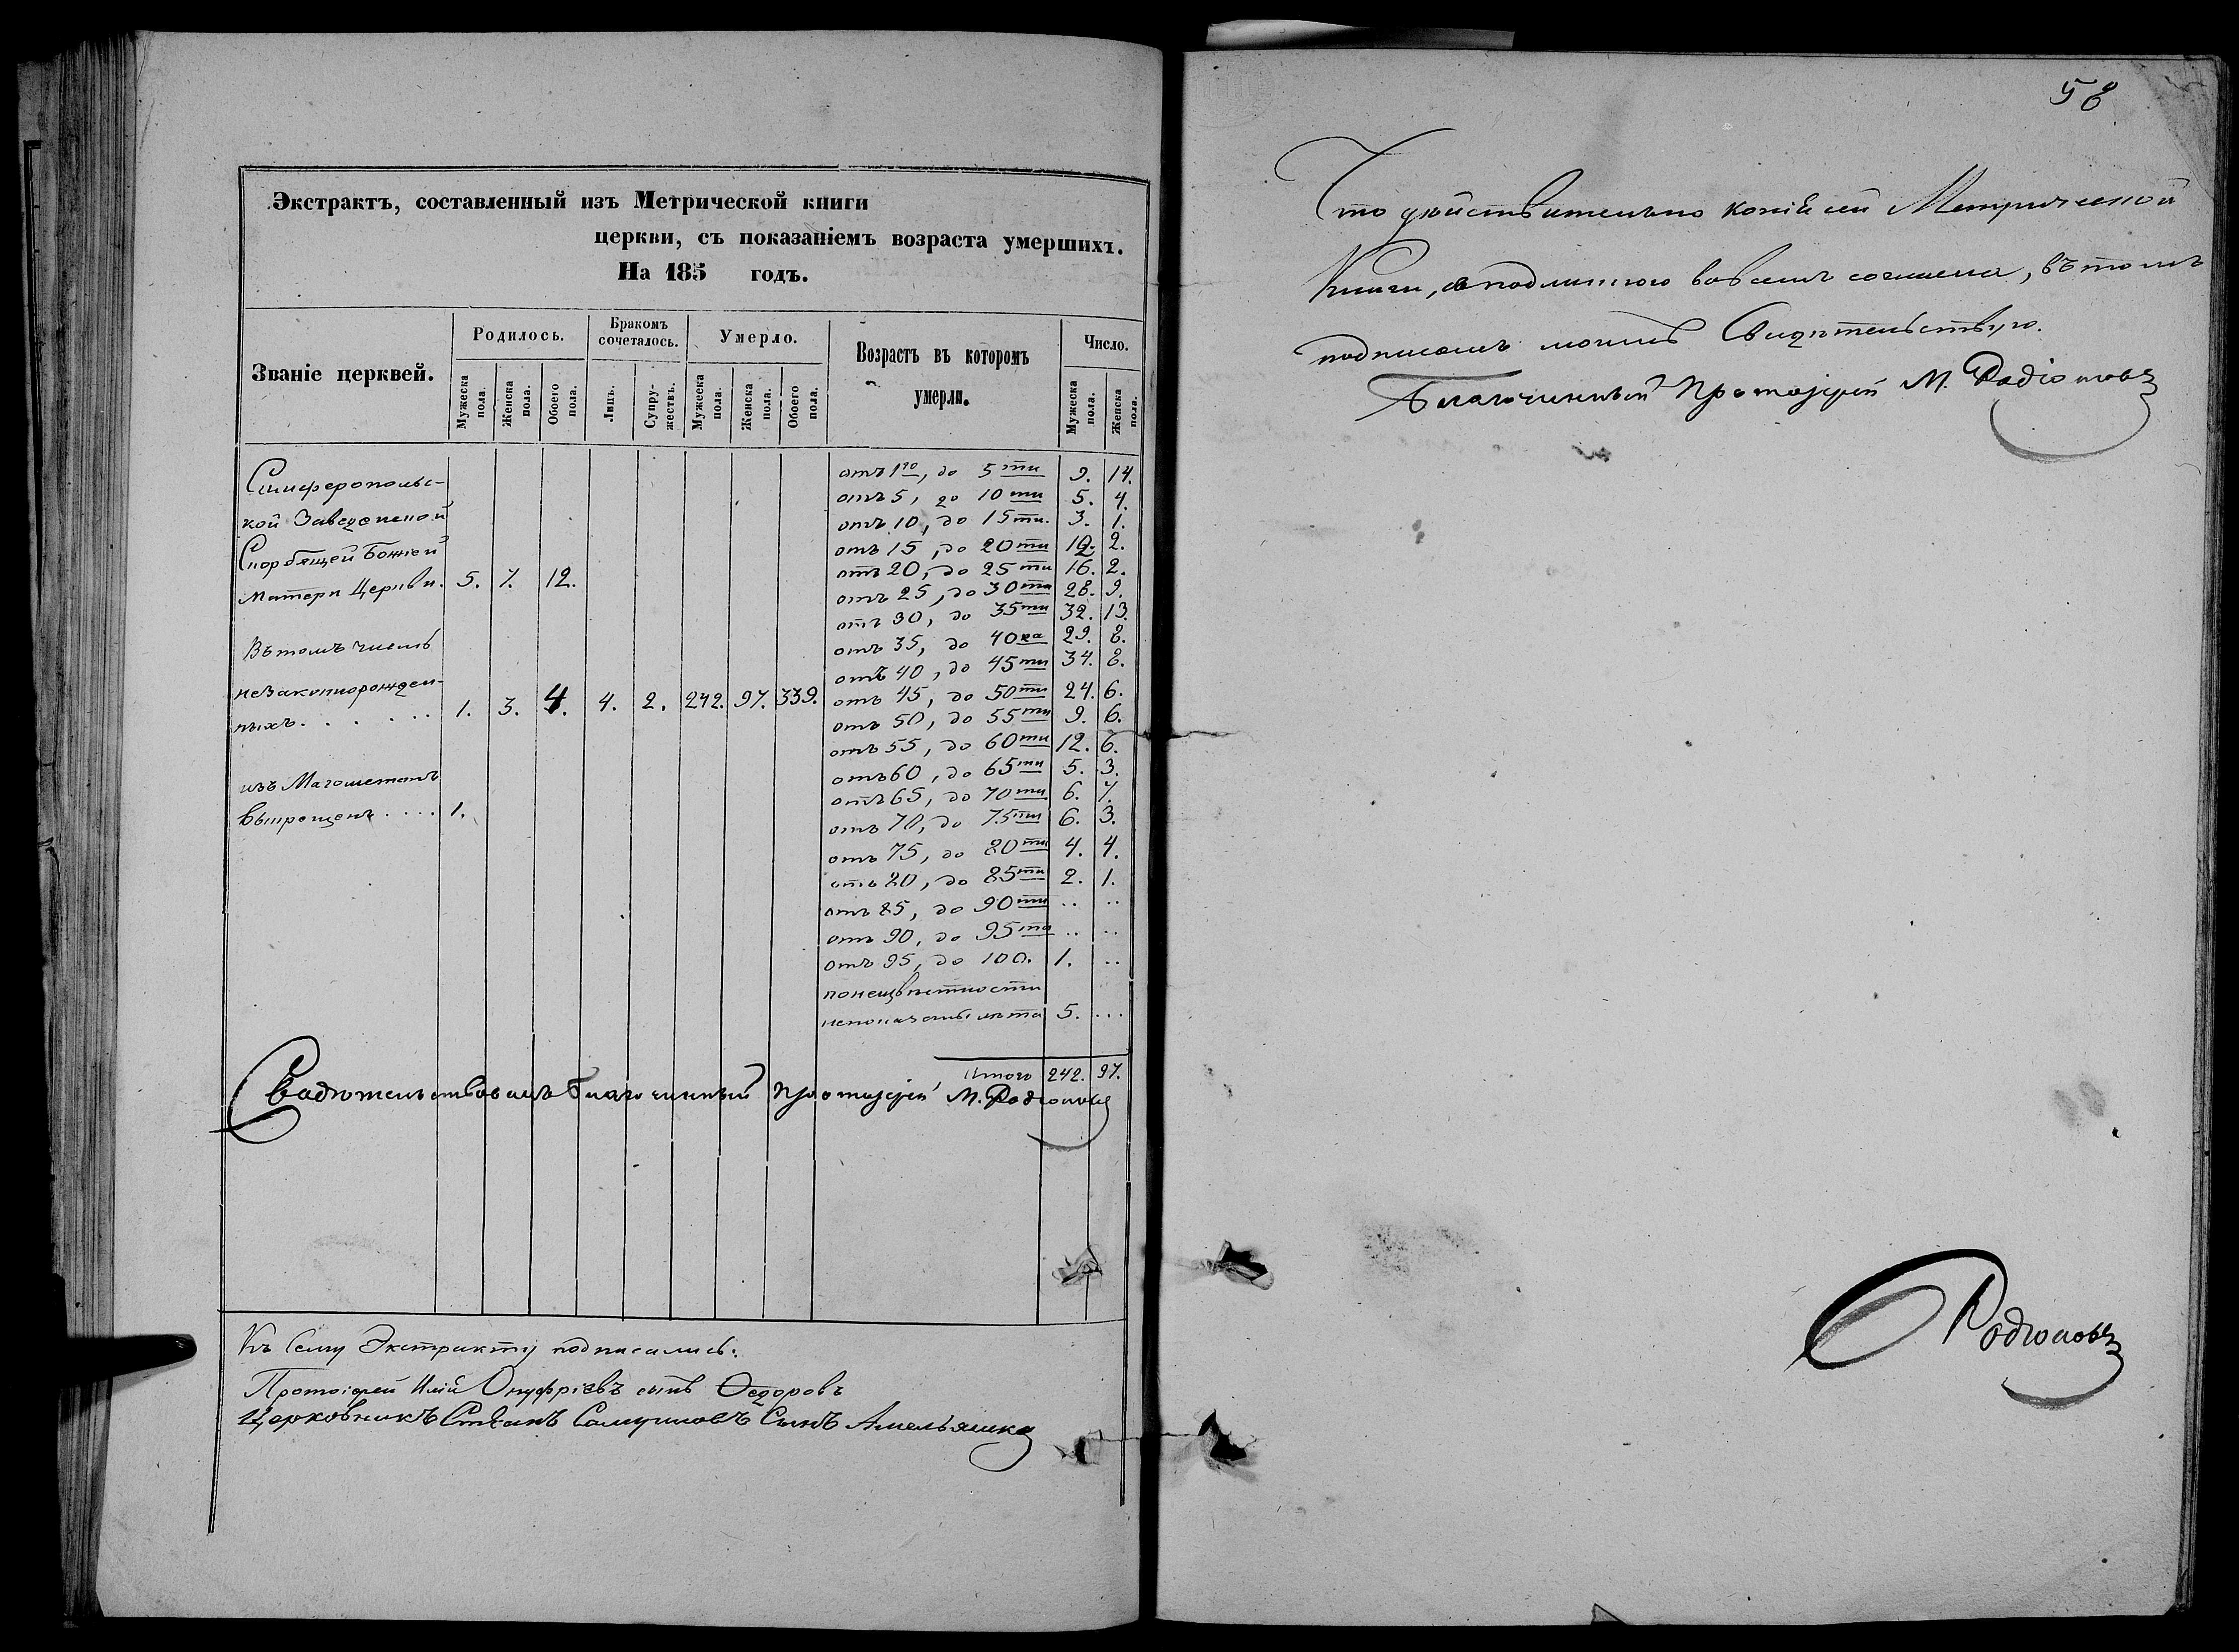 Экстрактъ, составленный изъ Метрической книги
церкви, съ показаніемъ возраста умершихъ.
На 185 годъ.
Званіе церквей.
Родилось.
Бракомъ сочеталось.
Умерло.
Возрастъ въ которомъ умерли.
Число.
Мужеска пола.
Женска пола.
Обоего пола.
Лицъ.
Супружествъ.
Мужеска пола.
Женска пола.
Обоего пола.
Мужеска пола.
Женска пола.
Симферопольс-
кой Заведенской
Скорбящей Божіей
Матери Церкви. 5. 7. 12.
Въ томъ числѣ
незаконнорожден-
ныхъ. . . . . . 1. 3. 4. 4. 2. 242. 97. 339.
изъ Магометанъ
выкрещенъ . . . . 1.
отъ 1го, до 5ти 9. 14.
отъ 5, до 10ти 5. 4.
отъ 10, до 15ти. 3. 1.
отъ 15, до 20ти 12. 2.
отъ 20, до 25ти 16. 2.
отъ 25, до 30ти 28. 9.
отъ 30, до 35ти 32. 13.
отъ 35, до 40ка 29. 8.
отъ 40, до 45ти 34. 8.
отъ 45, до 50ти 24. 6.
отъ 50, до 55ти 9. 6.
отъ 55, до 60ти 12. 6.
отъ 60, до 65ти 5. 3.
отъ 65, до 70ти 6. 7.
отъ 70, до 75ти 6. 3.
отъ 75, до 80ти 4. 4.
отъ 80, до 85ти 2. 1.
отъ 85, до 90ти .. ..
отъ 90, до 95ти .. ..
отъ 95, до 100. 1. ..
по неизвѣстности
непоказаны лѣта 5. ...
Итого 242. 97.
Свидѣтельствовалъ благочинный Протоіерей М. Родіоновъ
Къ сему Экстракту подписались:
Протоіерей Илій Онуфріевъ сынъ Ѳедоровъ
Церковникъ Стефанъ Самуиловъ Сынъ
58
Что дѣйствительно копія сей Метрической
Книги, съ подлинною во всемъ согласна, въ томъ
подписомъ моимъ Свидѣтельствую.
Благочинный Протоіерей М. Родіоновъ
Родіоновъ